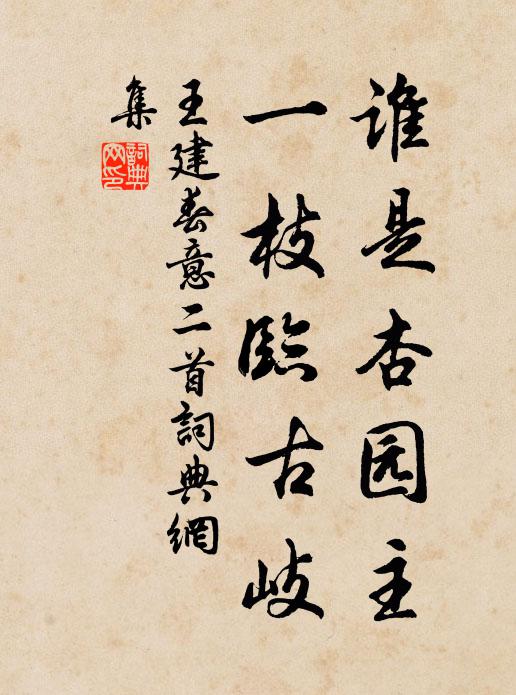 谁是杏园主
一枝臨古岐
王建春意二首詞典網
集
詞典
网印